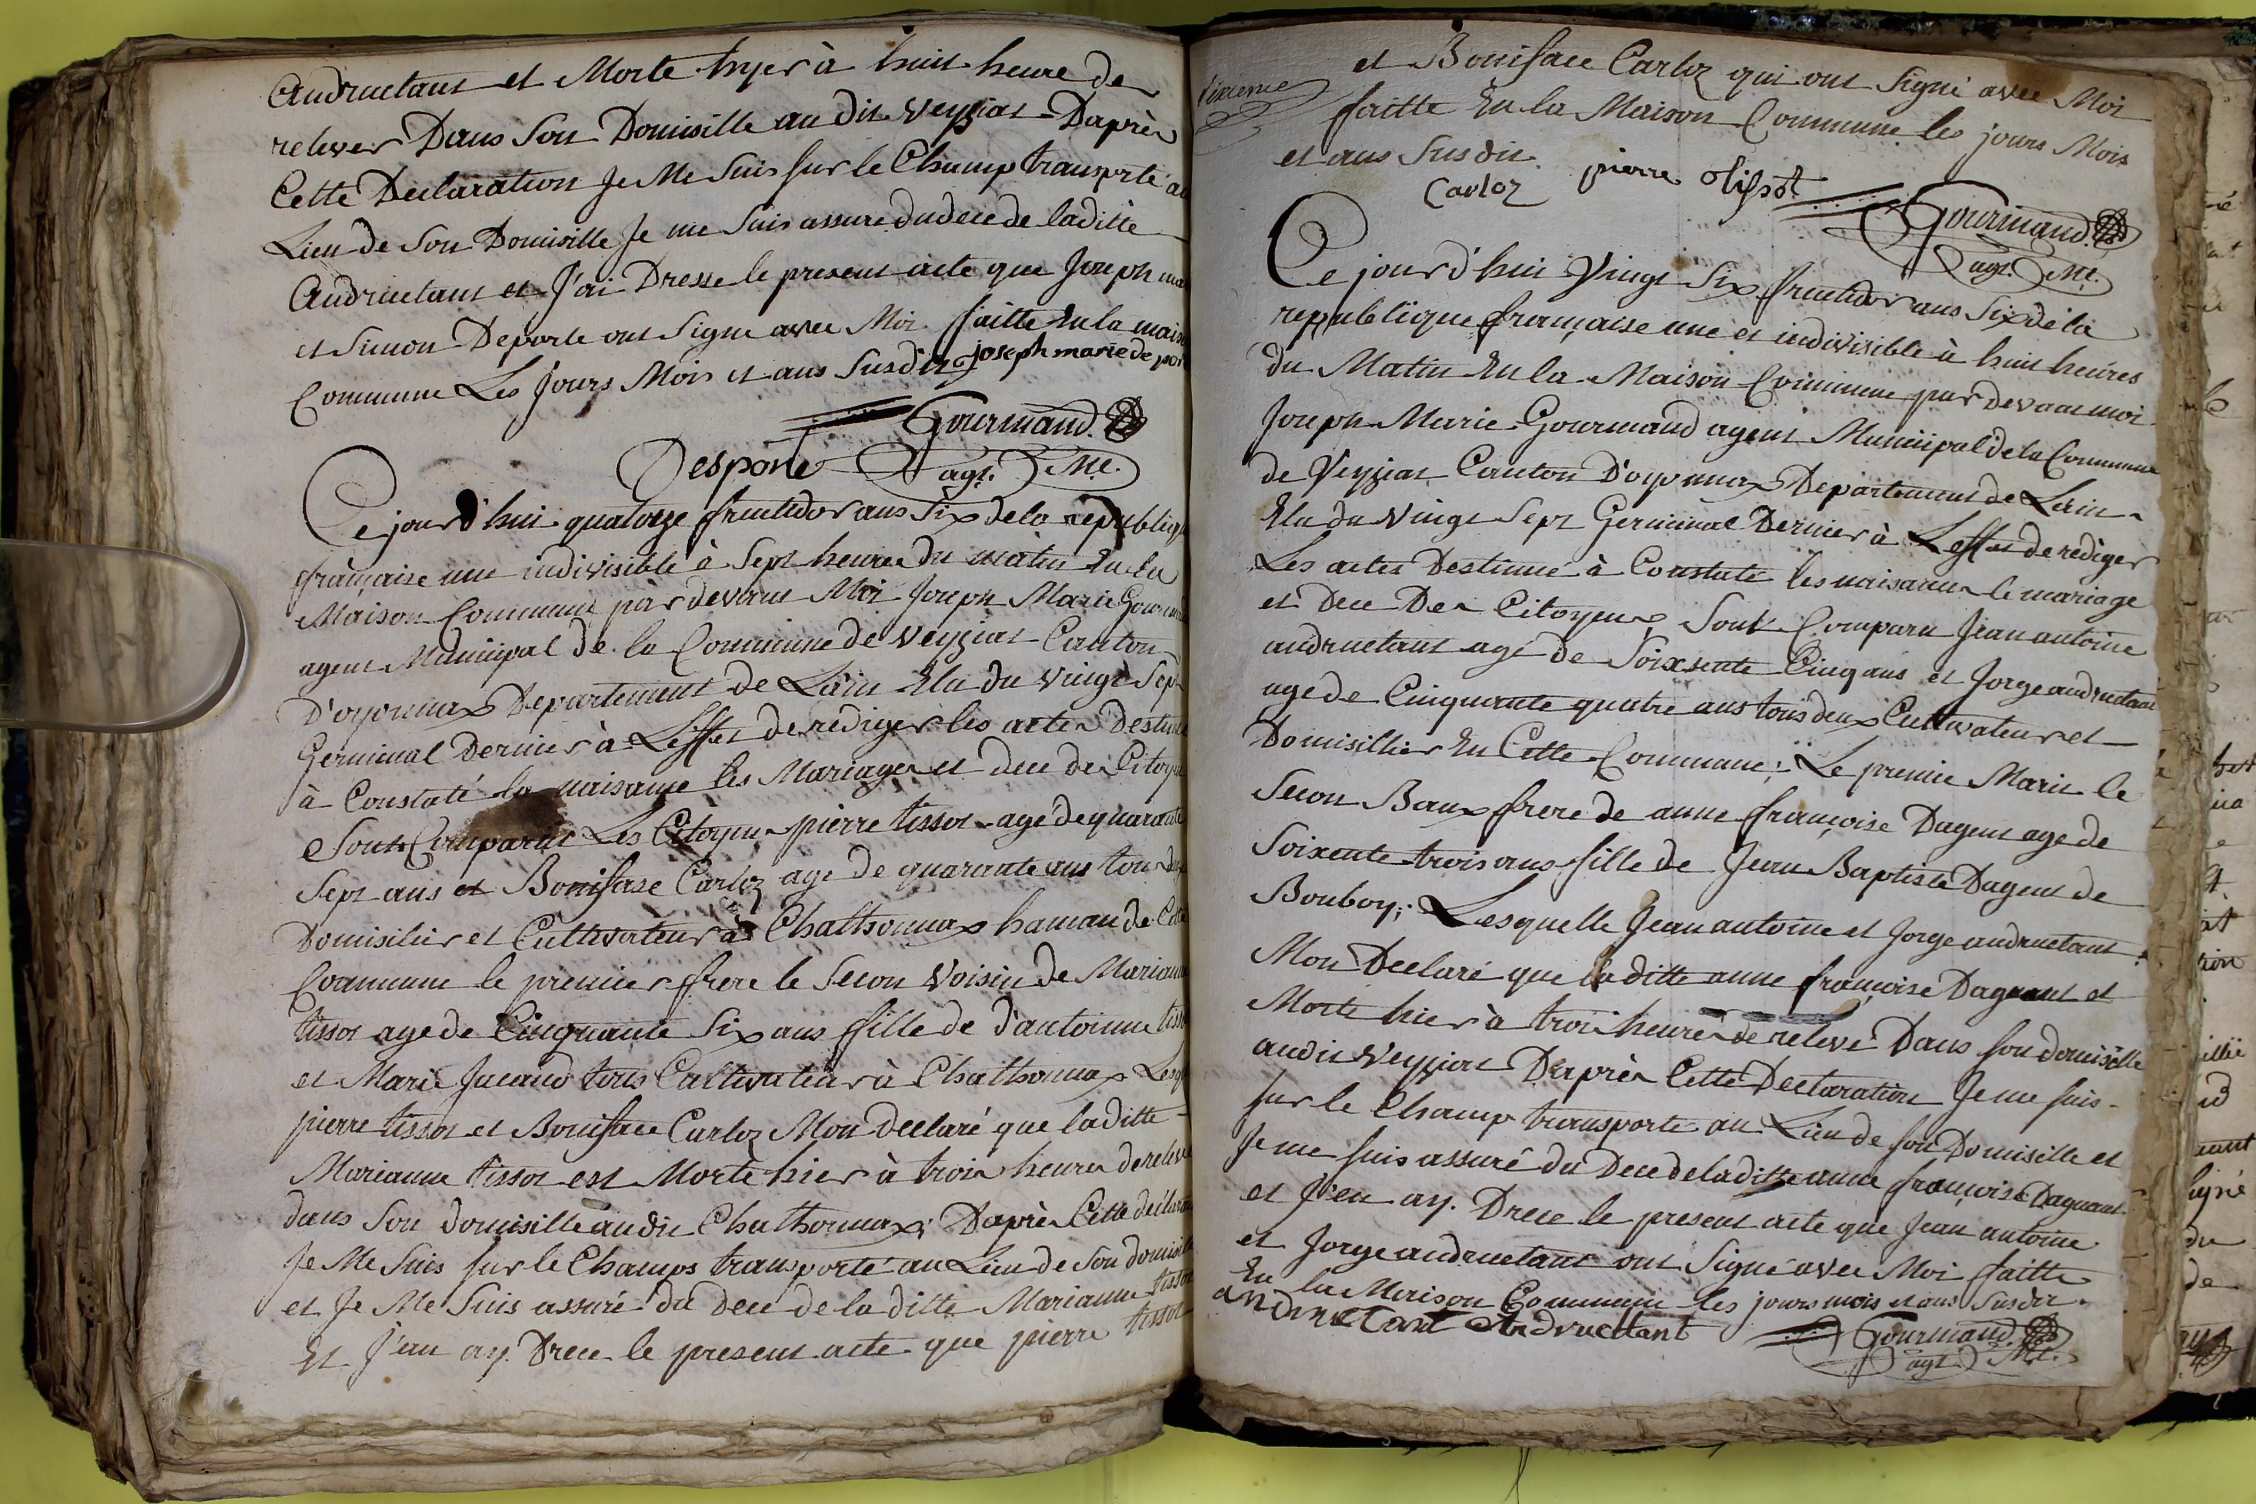 Andruetant et Morte hyer à huit heure de
relever Dans Son Domisille au dit Veyziat Daprès
Cette Declaration Je Me Suis sur le Champ transporté au
Lieu de Son Domisille Je me Suis assure du dece de laditte
Andruetant et J'ai Dresse le present acte que Joseph
et Simon Deporte ont Signe avec Moi faitte En la
Commune Les Jours Mois et ans Susdit joseph marie de
Gourmand
Desporte agt. Me.
Ce jourd'hui quatorze fructidor ans Six de la republique
française une indivisible à Sept heures du matin En la
Maison Commune par devant Moi Joseph Marie
agent Municipal de la Commune de Veyziat Canton
D'oyonnax Departement de Lain Elu du vingt Sept
Germinal dernier à Leffet de rediger les actes
à Constaté la naisance les Mariages et dece des
Sont Comparus Les Citoyens pierre tissot agé de quarante
Sept ans et Bonifase Carloz age de quarante ans tous
Domisilier et Cultivateur à Chatthonnax hamau de
Commune le premier frere le Secon Voisin de
tissot age de Cinquante Six ans fille de d'antoinne
et Marie Jacand tous Cultivateur à Chathonnax
pierre tissot et Boniface Carloz Mon declaré que laditte
Marianne tissot est Morte hier à trois heures
dans Son domisille audit Chathonnax; Daprès Cette
Je Me Suis sur le Champs transporté au Lieu de Son
et Je Me Suis assuré du dece de la ditte Marianne tissot
Et J'en ay Drece le present acte que pierre tissot
et Boniface Carloz qui ont Signé avec Moi
faitte En la Maison Commune les jours Mois
et ans Susdit
Carloz pierre tissot
Gourmand
agt. Me.
Ce jourd'hui Vingt Six fructidor ans Six de la
republique française une et indivisible à huit heures
du Matin En la Maison Commune par devant moi
Joseph Marie Gourmand agent Municipal de la Commune
de Veyziat Canton D'oyonnax Departement de Lain
Elu du vingt Sept Germinal Dernier à Leffet de rediger
Les actes Destinné à Constaté les naisances le mariage
et Dece Des Citoyens Sont Comparu Jean antoine
andruetant agé de Soixsente Cinq ans et Jorge andruetant
age de Cinquante quatre ans tous deux Cultivateur et
Domisillier En Cette Commune; Le premie Marie le
Secon Baux frere de anne françoise Dagent age de
Soixente trois ans fille de Jean Baptiste Dagent de
Bouboy; Lesquelle Jean antoine et Jorge andruetant
Mon Declaré que laditte anne françoise Dagent et
Morte hier à trois heures de relevé Dans son domisille
audit Veyziat Daprès Cette Declaration Je me suis
sur le Champ transporté au Lieu de son Domisille et
Je me suis assuré du Dece de laditte anne françoise Dagant
et J'en ay Drece le present acte que Jean antoine
et Jorge andruetant ont Signé avec Moi faitte
En la Maison Commune les jours mois et ans Susdit
andruetant Andruetant
Gourmand
agt. Me.